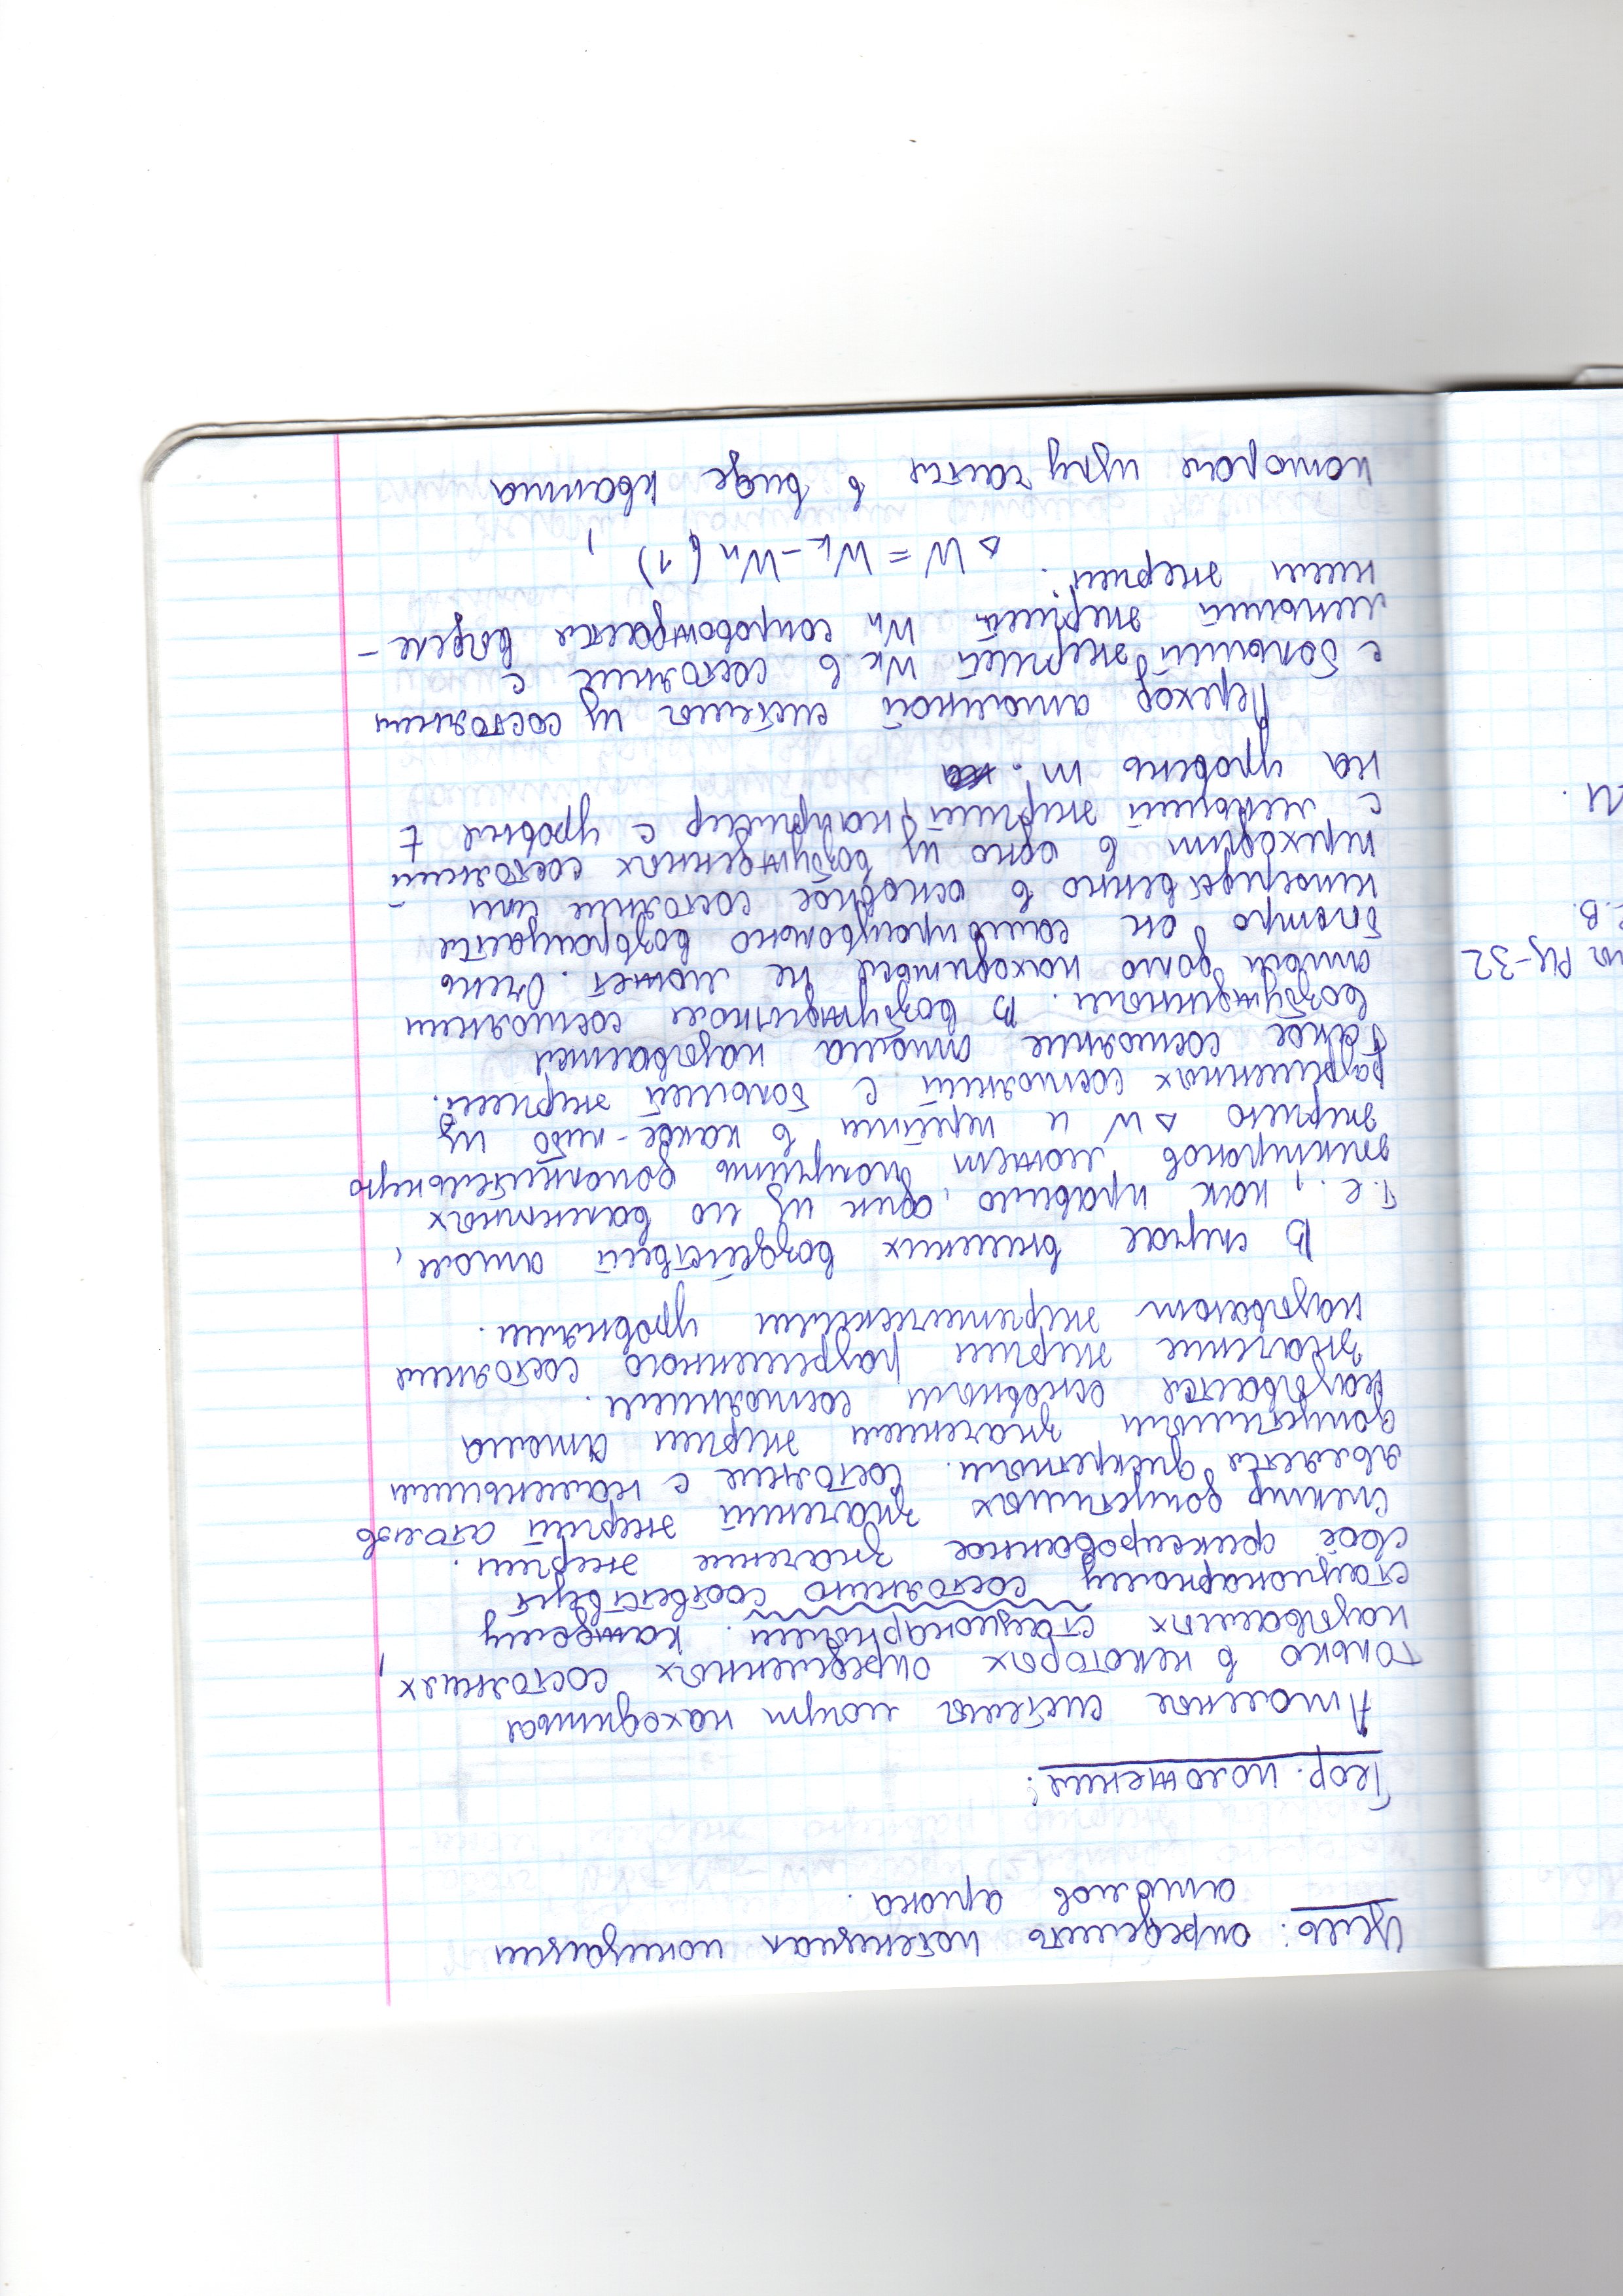 Цель: определить потенциал ионизации
атомов аргона.
Теор. положения:
Атомные системы могут находиться
только в некоторых определенных состояниях,
называемых стационарными. Каждому
стационарному состоянию соответствует
своё фиксированное значение энергии.
Спектр допустимых значений энергий атомов
является дискретным. Состояние с наменьшим
допустимым значением энергии атома
называется основным состоянием.
Значение энергии разрешенного состояния
называют энергетическими уровнями.
В случае внешних воздействий атом,
т.е., как правило, один из его валентных
электронов может получить дополнительную
энергию ΔW и перейти в какое-либо из
разрешенных состояний с большей энергией.
Такое состояние атома называется
возбужденным. В возбужденном состоянии
атом долго находиться не может. Очень
быстро он самопроизвольно возвращается
непосредственно в основное состояние или
переходит в одно из возбужденных состояний
с меньшей энергией, например с уровня t
на уровень m.
Переход атомной системы из состояния
с большей энергией Wк в состояние с
меньшей энергией Wn сопровождается выделе-
нием энергии:
ΔW = Wк - Wn (1) ,
которая излучается в виде кванта
ны РЦ-32
Е.В.
И.